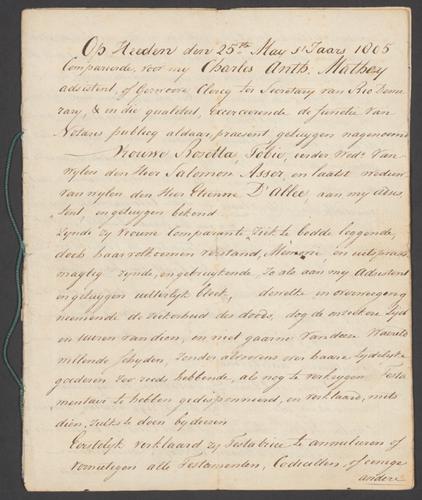 Op Heeden den 25ste May s'Jaars 1805
Compareerde, voor my Charles Anth. Mathey
adsistent, of Gezwoore Clercq ter Secretary van Rio Deme-
rary, & in die qualiteit, Excerceerende de functie van
Notaris publicq aldaar, præsent, getuygen nagenoemd
Vrouwe Rosetta Tobie, eerder Wede. Van
wylen den Heer Salomon Asser, en laatst weduwe
van wylen den Heer Etienne D'Allee, aan my adsis-
tent, en getuygen bekend
Zynde zy vrouwe Comparante ziek te bedde leggende,
doch haar volkomen verstand, Memorie, en uitspraak
magtig zynde, en gebruykende, zo als aan my Adsistent
en getuygen uitterlyk bleek, dewelke in overweeging
neemende de zeekerhud des doods, dog de onzeekere tyd
en uuren van dien, en niet gaarne van deeze Waereld
willende schyden, zonder alvorens over haare tydelyke
goederen zoo reeds hebbende, als nog te verkrygen Testa
mentair te hebben gedisponeerd, en verklaard, mits
dien, zulks te doen by deesen
Eerstelyk verklaard zy Testatrice te annulleren of
vernietigen alle Testamenten, Codicillen, of eenige
andere